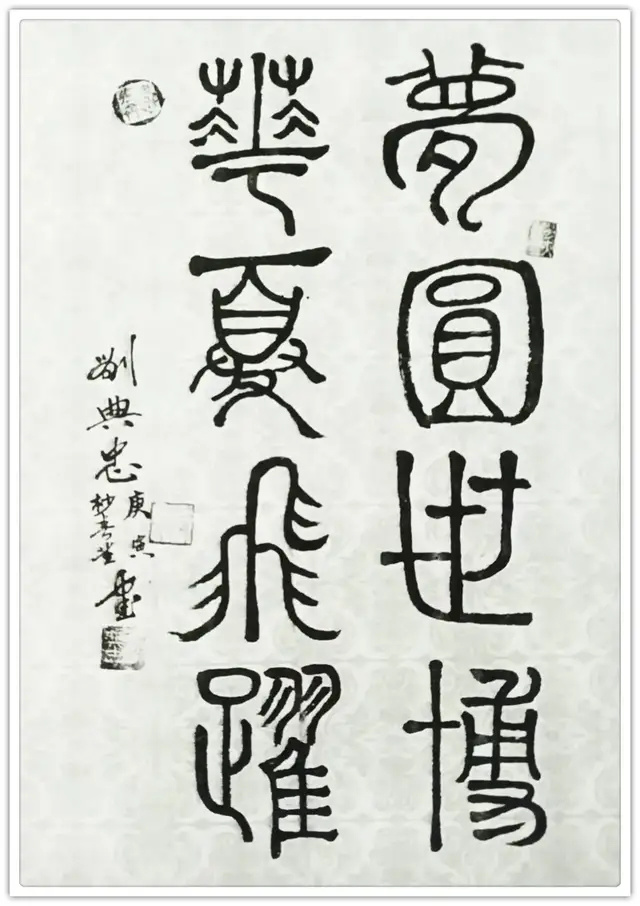 夢圓世博
華夏飛躍
劉典忠
庚寅